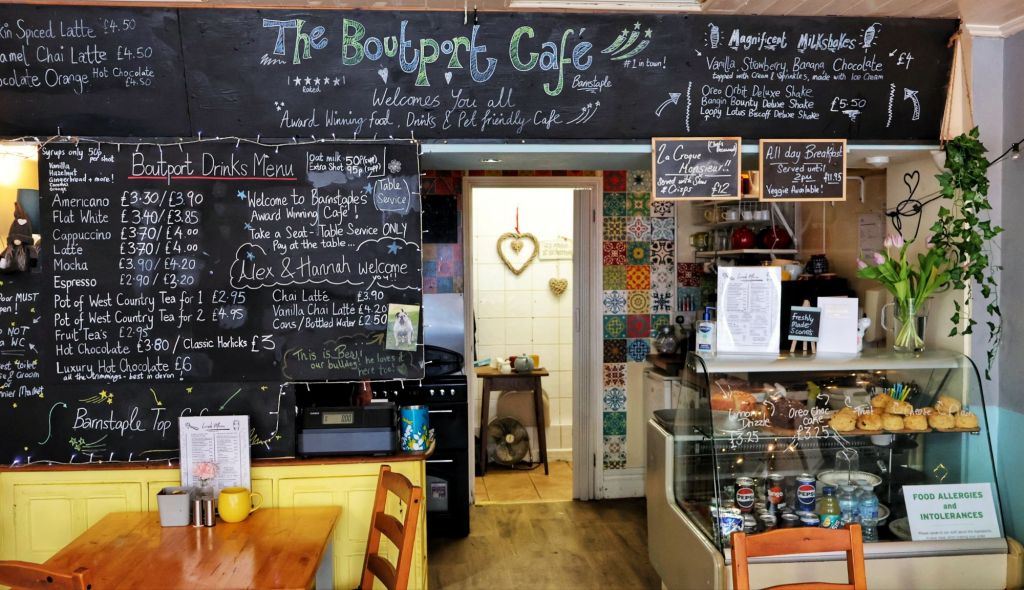 Spiced Latte £4.50
Chai Latte £4.50
Orange Hot Chocolate £4.50
The Boutport Café
Barnstaple
#1 in town!
★★★★★
Rated
Welcomes You all
Award Winning food, Drinks & Pet friendly Cafe
Magnificent Milkshakes
Vanilla, Strawberry, Banana Chocolate £4
topped with Cream & Sprinkles, made with Ice Cream
Oreo Orbit Deluxe Shake
Bangin Bounty Deluxe Shake £5.50
Loopy Lotus Biscoff Deluxe Shake
Syrups only 50p
per shot
Vanilla
Hazelnut
Gingerbread + more!
Boutport Drinks Menu
Oat milk 50p
Extra Shot 95p
Table
Service
Americano £3.30/£3.90
Flat White £3.40/£3.85
Cappuccino £3.70/£4.00
Latte £3.70/£4.00
Mocha £3.90/£4.20
Espresso £2.90/£3.20
Pot of West Country Tea for 1 £2.95
Pot of West Country Tea for 2 £4.95
Fruit Tea's £2.95
Hot Chocolate £3.80/Classic Horlicks £3
Luxury Hot Chocolate £6
all the trimmings - best in devon!
Welcome to Barnstaple's
Award Winning Cafe!
Take a Seat - Table Service ONLY
Pay at the table...
Alex & Hannah welcome you
Chai Latte £3.90
Vanilla Chai Latte £4.20
Cans/Bottled Water £2.50
This is Bear!
our bulldog! he loves it
here too!
MUST
NOT
Barnstaple Top
Lunch Menu
La Croque
Monsieur!!
Served with Slaw
& Crisps £12
All day Breakfast
Served until
2pm £11.95
Veggie Available!
Lunch Menu
Freshly
Made
Scones
Lemon
Drizzle
£3.25
Oreo Choc
Cake
£3.25
PEPSI
Tango
PEPSI
FOOD ALLERGIES
and
INTOLERANCES